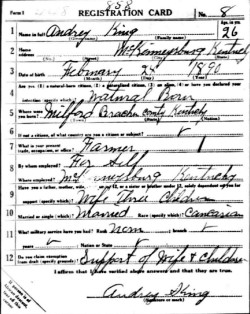 Form 1
838
REGISTRATION CARD No. 8
1 Name in full Andrey King Age, in yrs. 26
(Given name) (Family name)
2 Home address McKinneysburg Kentucky
3 Date of birth February 24 1890
(Month) (Day) (Year)
4 Are you (1) a natural-born citizen, (2) a naturalized citizen, (3) an alien, (4) or have you declared your
intention (specify which)? Natural Born
5 Where were you born? Milford Bracken County Kentucky
6 If not a citizen, of what country are you a citizen or subject?
7 What is your present trade, occupation, or office? Farmer
8 By whom employed? For Self
Where employed? Kentucky
9 Have you a father, mother, wife, child under 12, or a sister or brother under 12, solely dependent on you for
support (specify which)? Wife three Children
10 Married or single (which)? Married Race (specify which)? Caucasian
11 What military service have you had? Rank None ; branch
years ; Nation or State
12 Do you claim exemption from draft (specify grounds)? Support of Wife & Children
I affirm that I have verified above answers and that they are true.
Andrey King
(Signature or mark)